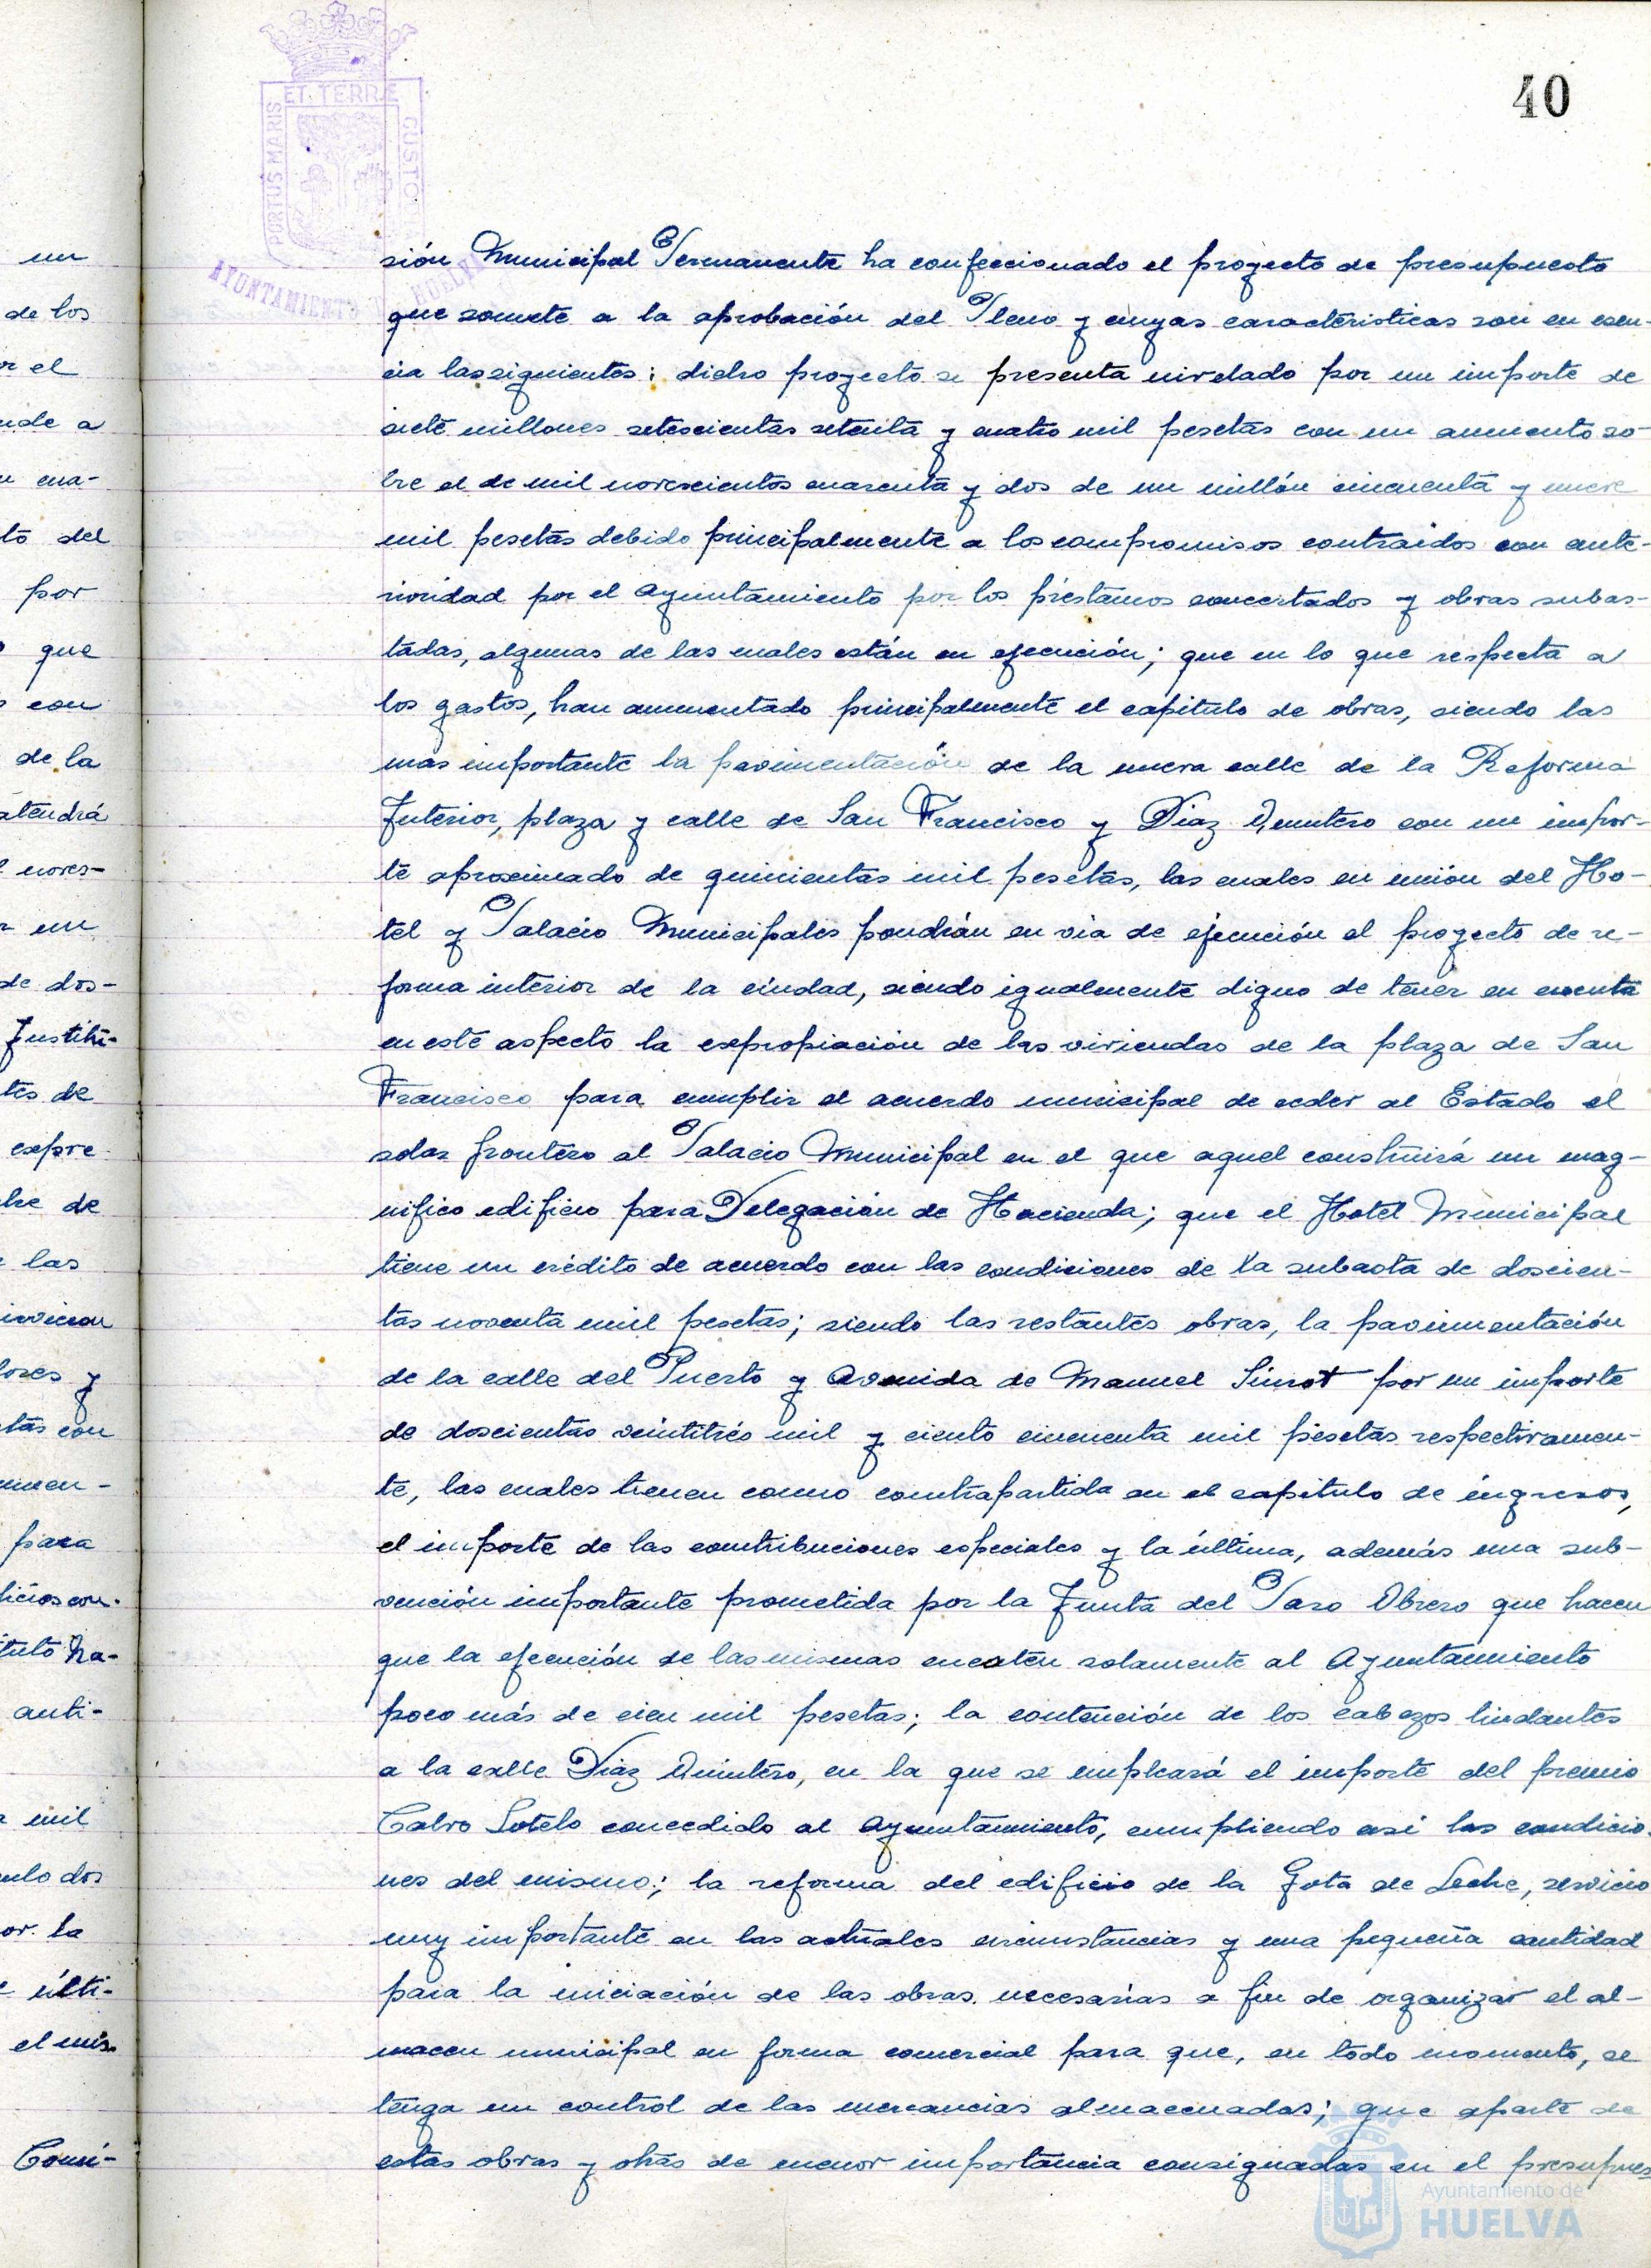 40
ET TERRE
PORTUS MARIS
CUSTO
AYUNTAMIENTO D HUELVA
un
de los
or el
nde a
cua-
to del
por
que
con
de la
atendrá
noves-
un
de dos-
Justiti-
tes de
expre
de
las
y
tas con
para
ha-
anti-
mil
ulo dos
or la
últi-
el mis-
Comi-
sión Municipal Permanente ha confeccionado el proyecto de presupuesto
que somete a la aprobación del Pleno y cuyas caracteristicas son en esen-
cia las siguientes: dicho proyecto se presenta nivelado por un importe de
siete millones setescientas setenta y cuatro mil pesetas con un aumento so-
bre el de mil novescientos cuarenta y dos de un millón cincuenta y nueve
mil pesetas debido principalmente a los compromisos contraidos con ante-
rioridad por el Ayuntamiento por los préstamos concertados y obras subas-
tadas, algunas de las cuales están en ejecución; que en lo que respecta a
los gastos, han aumentado principalmente el capitulo de obras, siendo las
mas importante la pavimentación de la nueva calle de la Reforma
Interior, plaza y calle de San Francisco y Diaz Quintero con un impor-
te aproximado de quinientas mil pesetas, las cuales en unión del Ho-
tel y Palacio Municipales pondrán en via de ejecución el proyecto de re-
forma interior de la ciudad, siendo igualmente digno de tener en cuenta
en este aspecto la expropiación de las viviendas de la plaza de San
Francisco para cumplir el acuerdo municipal de ceder al Estado el
solar frontero al Palacio Municipal en el que aquel construirá un mag-
nifico edificio para Delegación de Hacienda; que el Hotel Municipal
tiene un crédito de acuerdo con las condiciones de la subasta de doscien-
tas noventa mil pesetas; siendo las restantes obras, la pavimentación
de la calle del Puerto y Avenida de Manuel Siurot por un importe
de doscientas veintitrés mil y ciento cincuenta mil pesetas respectivamen-
te, las cuales tienen como contrapartida en el capitulo de ingresos,
el importe de las contribuciones especiales y la última, además una sub-
vención importante prometida por la Junta del Paro Obrero que hacen
que la ejecución de las mismas cuesten solamente al Ayuntamiento
poco más de cien mil pesetas; la contención de los cabezos lindantes
a la calle Diaz Quintero, en la que se empleará el importe del premio
Calvo Sotelo concedido al Ayuntamiento, cumpliendo asi las condicio-
nes del mismo; la reforma del edificio de la Gota de Leche, servicio
muy importante en las actuales circunstancias y una pequeña cantidad
para la iniciación de las obras necesarias a fin de organizar el al-
macen municipal en forma comercial para que, en todo momento, se
tenga un control de las mercancias almacenadas; que aparte de
estas obras y otras de menor importancia consignadas en el presupues
Ayuntamiento de
HUELVA